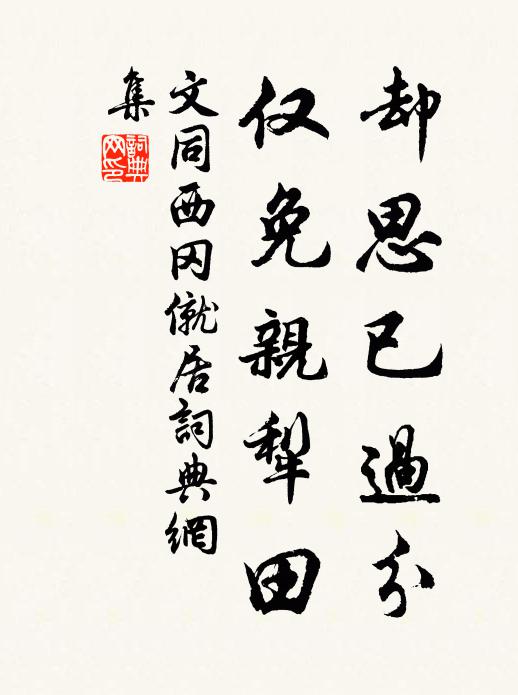 却思已過分
仅免親犁田
文同西冈僦居詞典網
集
詞典网印